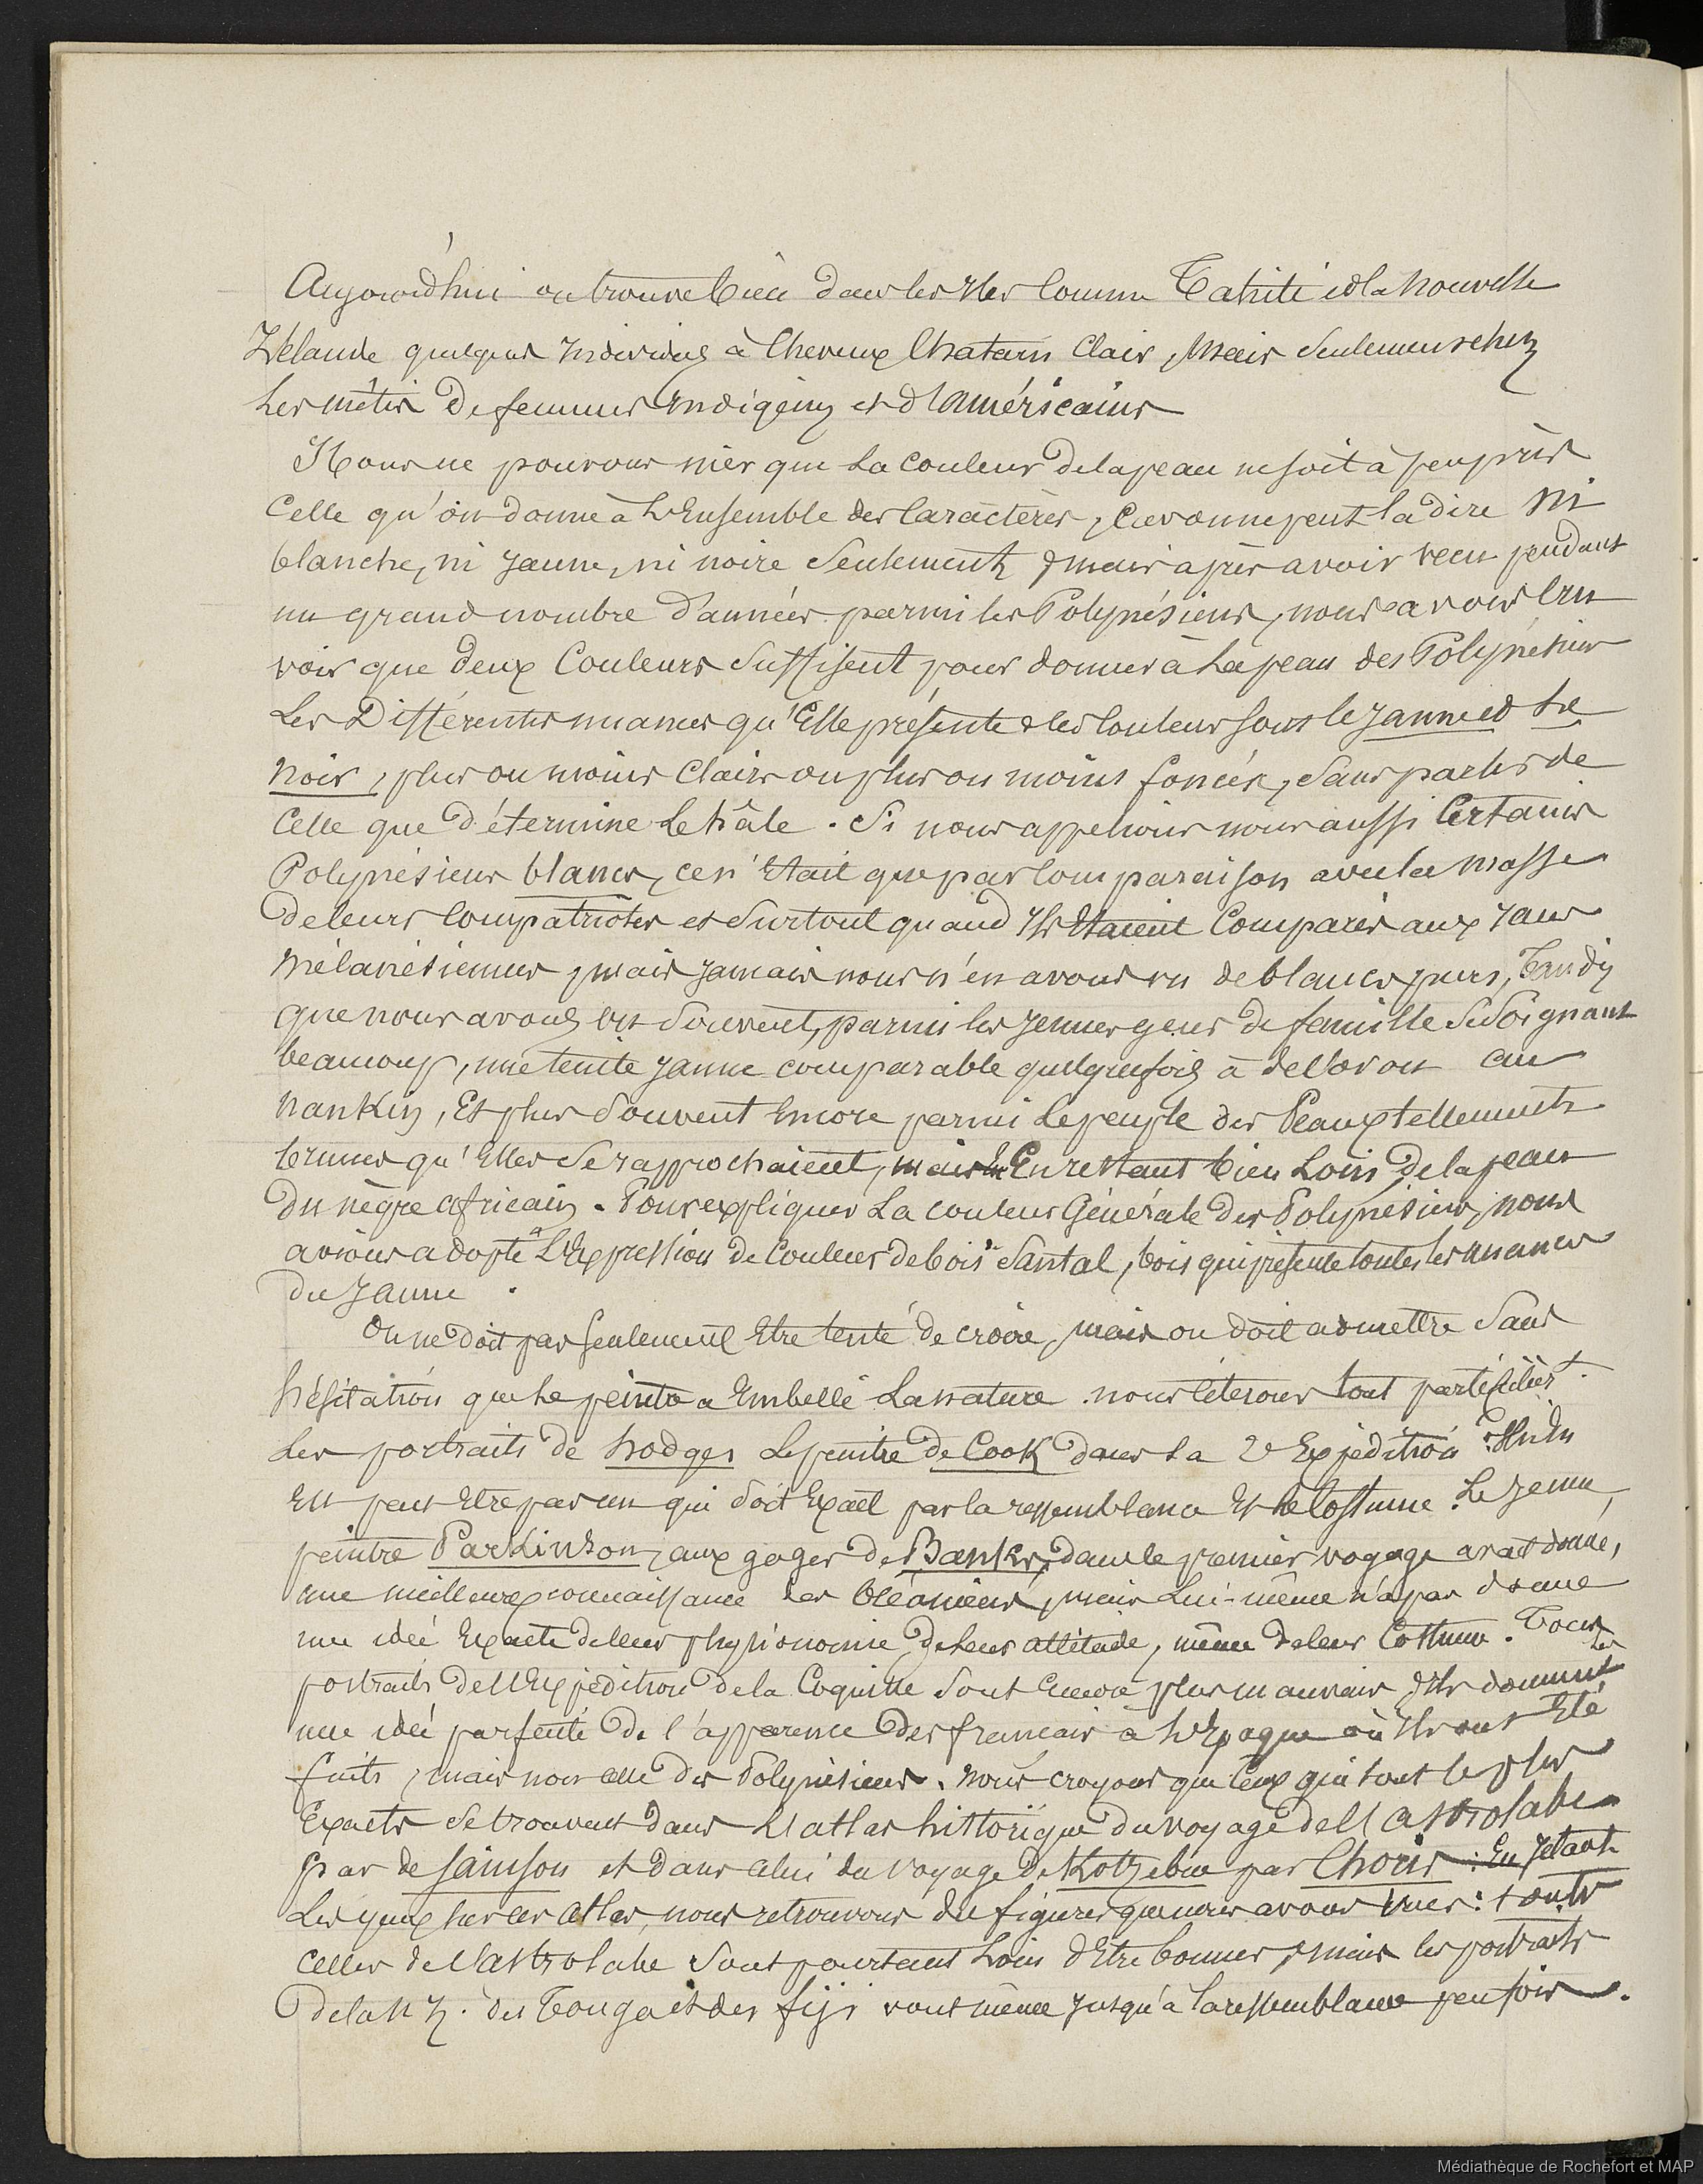 Aujourd'hui on trouve bien dans les Iles comme Tahiti et la Nouvelle
Zélande quelques Individus à Cheveux Chatain Clair, Mais Seulement chez
Les métis De femmes Indigènes et d'américains
Nous ne pouvons nier que La Couleur de la peau ne soit à peu près
Celle qu'on donne à L'Ensemble des Caractères, Car on ne peut la dire Ni
blanche, ni Jaune, ni noire Seulement, mais après avoir vécu pendant
un grand nombre D'années parmi les Polynésiens, nous avons Cru
voir que Deux Couleurs Suffisent pour donner à La peau des Polynésiens
Les Différentes nuances qu'Elle présente & les Couleurs sont le Jaune et Le
Noir, plus ou moins Clairs ou plus ou moins foncés, Sans parler de
Celle que Détermine Le hâle. Si nous appelions nous aussi Certains
Polynésiens blancs, ce n'Etait que par Comparaison avec la Masse
De leurs Compatriotes et Surtout quand Ils Etaient Comparés aux
Mélanésiennes, mais Jamais nous n'en avons vu de blancs purs, Tandis
Que nous avons vu Souvent, parmi les Jeunes gens De famille Se Soignant
beaucoup, une teinte Jaune comparable quelquefois à de l'or ou au
Nankin, Et plus Souvent Encore parmi Le peuple des Peaux tellement
brunes qu'Elles Se rapprochaient, mais En restant bien Loin De la peau
Du nègre africain. Pour expliquer La couleur Générale Des Polynésiens, nous
avions adopté L'Expression de Couleur de bois Santal, bois qui présente toutes les nuances
Du Jaune.
On ne Doit pas Seulement Etre tenté de croire, mais on doit admettre Sans
hésitation que Le peintre a Embelli La nature. nous citerons tout particulièrt.
Les portraits de Hodges Le peintre De Cook dans La 2e Expédition: Il n'En
Est peut Etre pas un qui Soit Exact par la ressemblance Et le Costume. Le Jeune
peintre Parkinson, aux gages De Banks, Dans le premier voyage avait donné,
une meilleure connaissance des Océaniens, mais Lui-même n'a pas donné
une idée Exacte De leur physionomie, De leur attitude, même De leur Costume. Tous les
portraits De l'Expédition De la Coquille Sont Encore plus mauvais & Ils donnent
une idée parfaite De l'apparence Des francais à L'Epoque où Ils ont Eté
faits, mais non celle Des Polynésiens. nous croyons que Ceux qui Sont le plus
Exacts Se trouvent Dans L'atlas historique Du voyage De l'Astrolabe
par de Sainson et Dans celui du voyage De Kotzebue par Choris: En Jetant
Les yeux sur ces atlas, nous retrouvons Des figures que nous avons vues: toutes
Celles De l'astrolabe Sont pourtant Loin d'Etre bonnes, mais les portraits
De la N Z. Des Tonga et des fiji vont même Jusqu'à la ressemblance